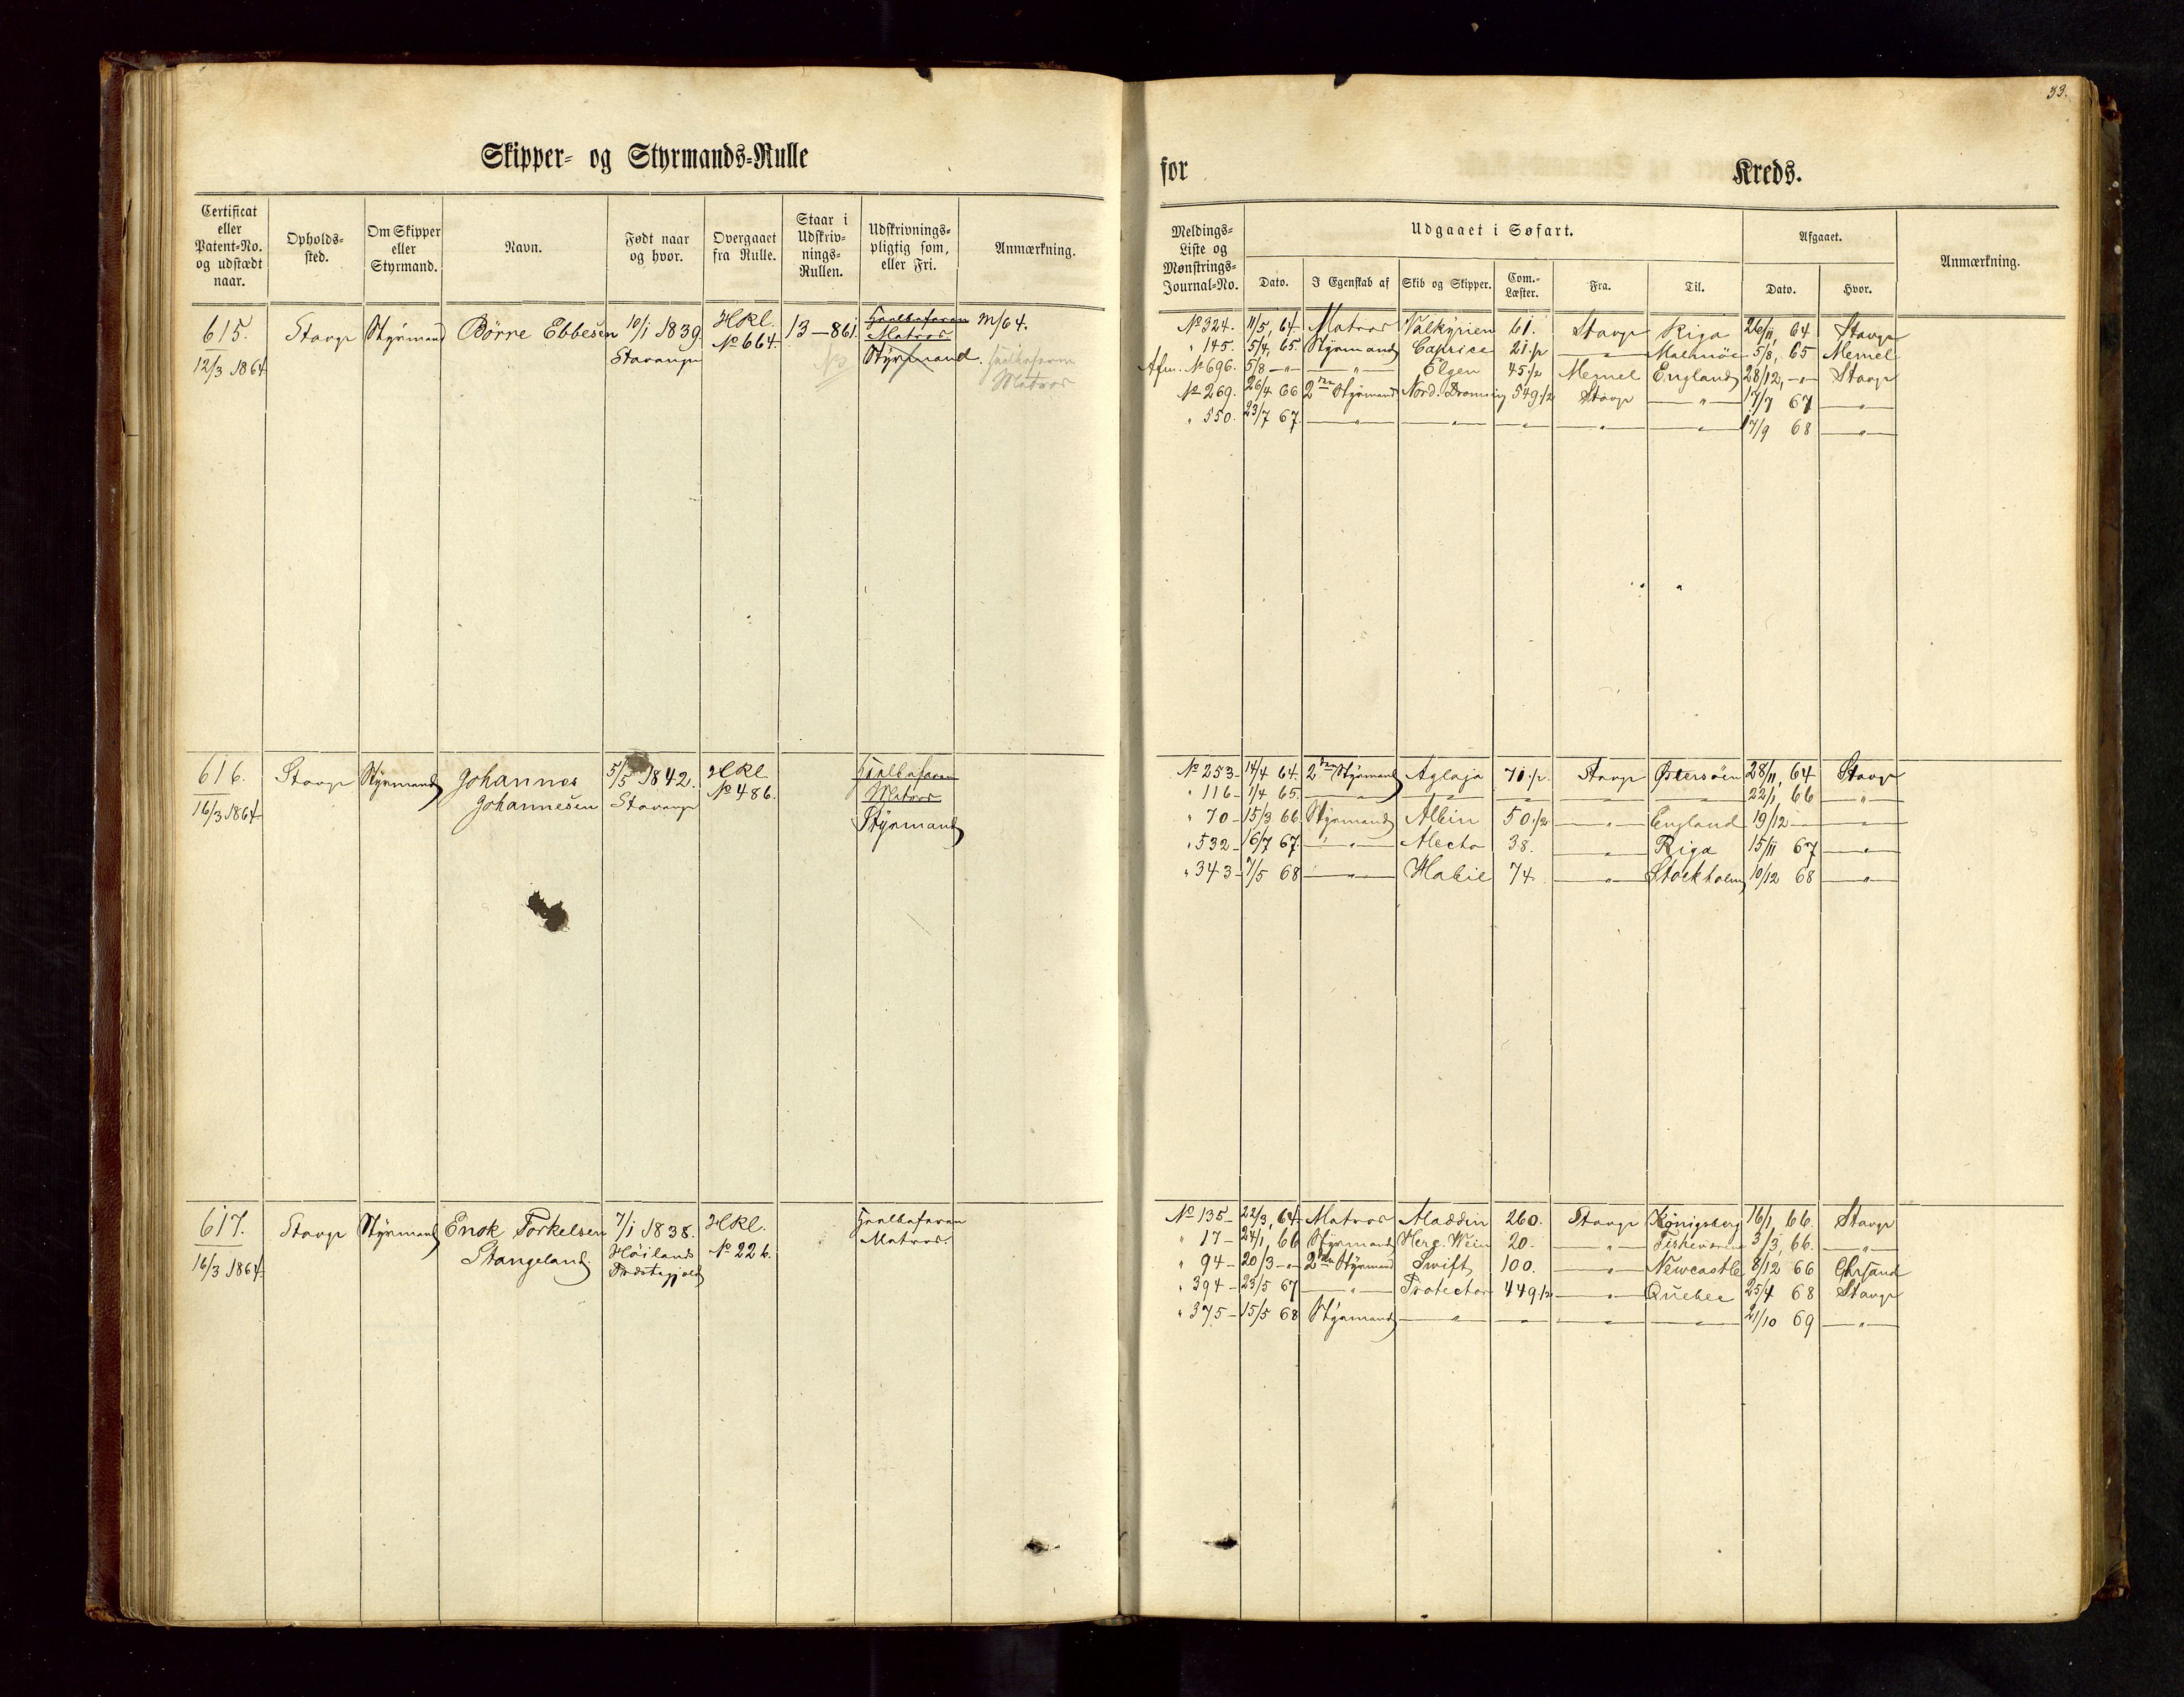 33.
Skipper- og Styrmands-Rulle
for Kreds.
Certificat eller Patent-No. og udstædt naar.
Opholds-sted.
Om Skipper eller Styrmand.
Navn.
Født naar og hvor.
Overgaaet fra Rulle.
Staar i Udskriv-nings-Rullen.
Udskrivnings-pligtig som, eller Fri.
Anmærkning.
Meldings-Liste og Mønstrings-Journal-No.
Udgaaet i Søfart.
Dato.
I Egenskab af
Skib og Skipper.
Com.-Læster.
Fra.
Til.
Afgaaet.
Dato.
Hvor.
Anmærkning.
615. Stavgr Styrmand Børre Ebbesen 10/1 1839 HKl. 13-861. Halvbefaren m/64.
12/3 1864 Stavanger No 664. Matros
Styrmand. Halvbefaren
Matros
No 324. 11/5, 64 Matros Valkyrien 61. Stavgr Riga 26/11, 64 Stavgr
" 145. 5/4, 65. Styrmand Caprice 21 1/2 — Malmöe 5/8, 65 Memel
Afm. No 696. 5/8 -"- -"- Elgen 45 1/2 Memel England 28/12, -"- Stavgr
No 269. 26/4 66 2den Styrmand Nord. Dronning 549 1/2 Stavgr -"- 17/7 67 -"-
" 550. 23/7 67. -"- -"- -"- -"- -"- 17/9 68 -"-
616. Stavgr Styrmand Johannes 5/5 1842. HKl. Halvbefaren
16/3 1864 Johannesen Stavanger No 486. Matros
Styrmand
No 253 - 14/4 64. 2den Styrmand Aglaja 71 1/2. Stavgr Østersöen 28/11, 64 Stavgr
" 116 - 1/4 65. -"- -"- -"- -"- -"- 22/1, 66 -"-
" 70 - 15/3 66 Styrmand Albin 50 1/2 -"- England 19/12 - -"-
" 532 - 16/7 67. -"- Alecto 38. -"- Riga 15/11 67 -"-
" 343 - 7/5 68 -"- Habil 74. -"- Stockholm 10/12 68 -"-
617. Stavgr Styrmand Enok Torkelsen 7/1 1838. HKl. Halvbefaren
16/3 1864 Stangeland. Höiland No 226. Matros.
Præstegjeld
No 135 - 22/3, 64 Matros Aladdin 260. Stavgr Königsberg 16/1, 66. Stavgr
" 17 - 24/1, 66 Styrmand 20. -"- 3/3, 66. -"-
" 94 - 20/3 -"- 2den Styrmand Swift 100. -"- Newcastle 8/12 66 Chrsand
" 394 - 23/5 67 -"- Protector 449 1/2 -"- Quebec 25/4 68 Stavgr
" 375 - 15/5 68 Styrmand -"- -"- -"- -"- 21/10 69 -"-